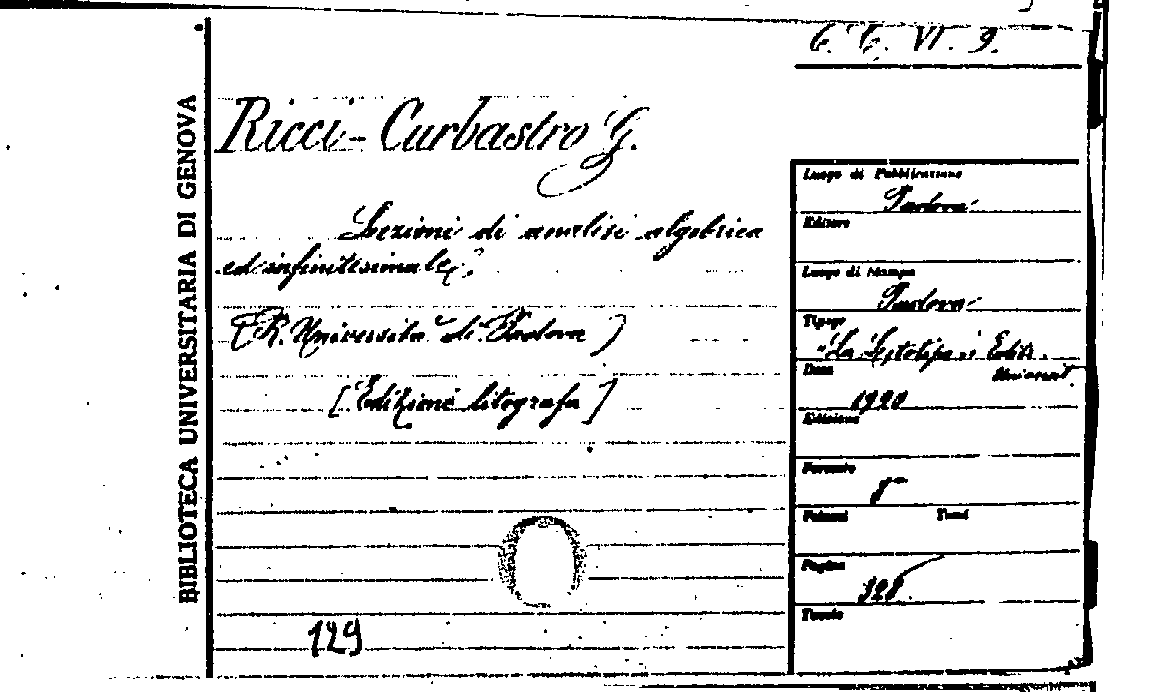 6. 6. VI. 9.
BIBLIOTECA UNIVERSITARIA DI GENOVA
Ricci-Curbastro G.
Lezioni di analisi algebrica
ed infinitesimale.
(R. Università di Padova)
[Edizione litografa]
129
Luogo di Pubblicazione
Padova
Editore
Luogo di Stampa
Padova
Tipogr
"La Litotipo" Ediz.
Data
Universit.
Edizione
Formato
8°
Volumi Tomi
Pagine
328
Tavole